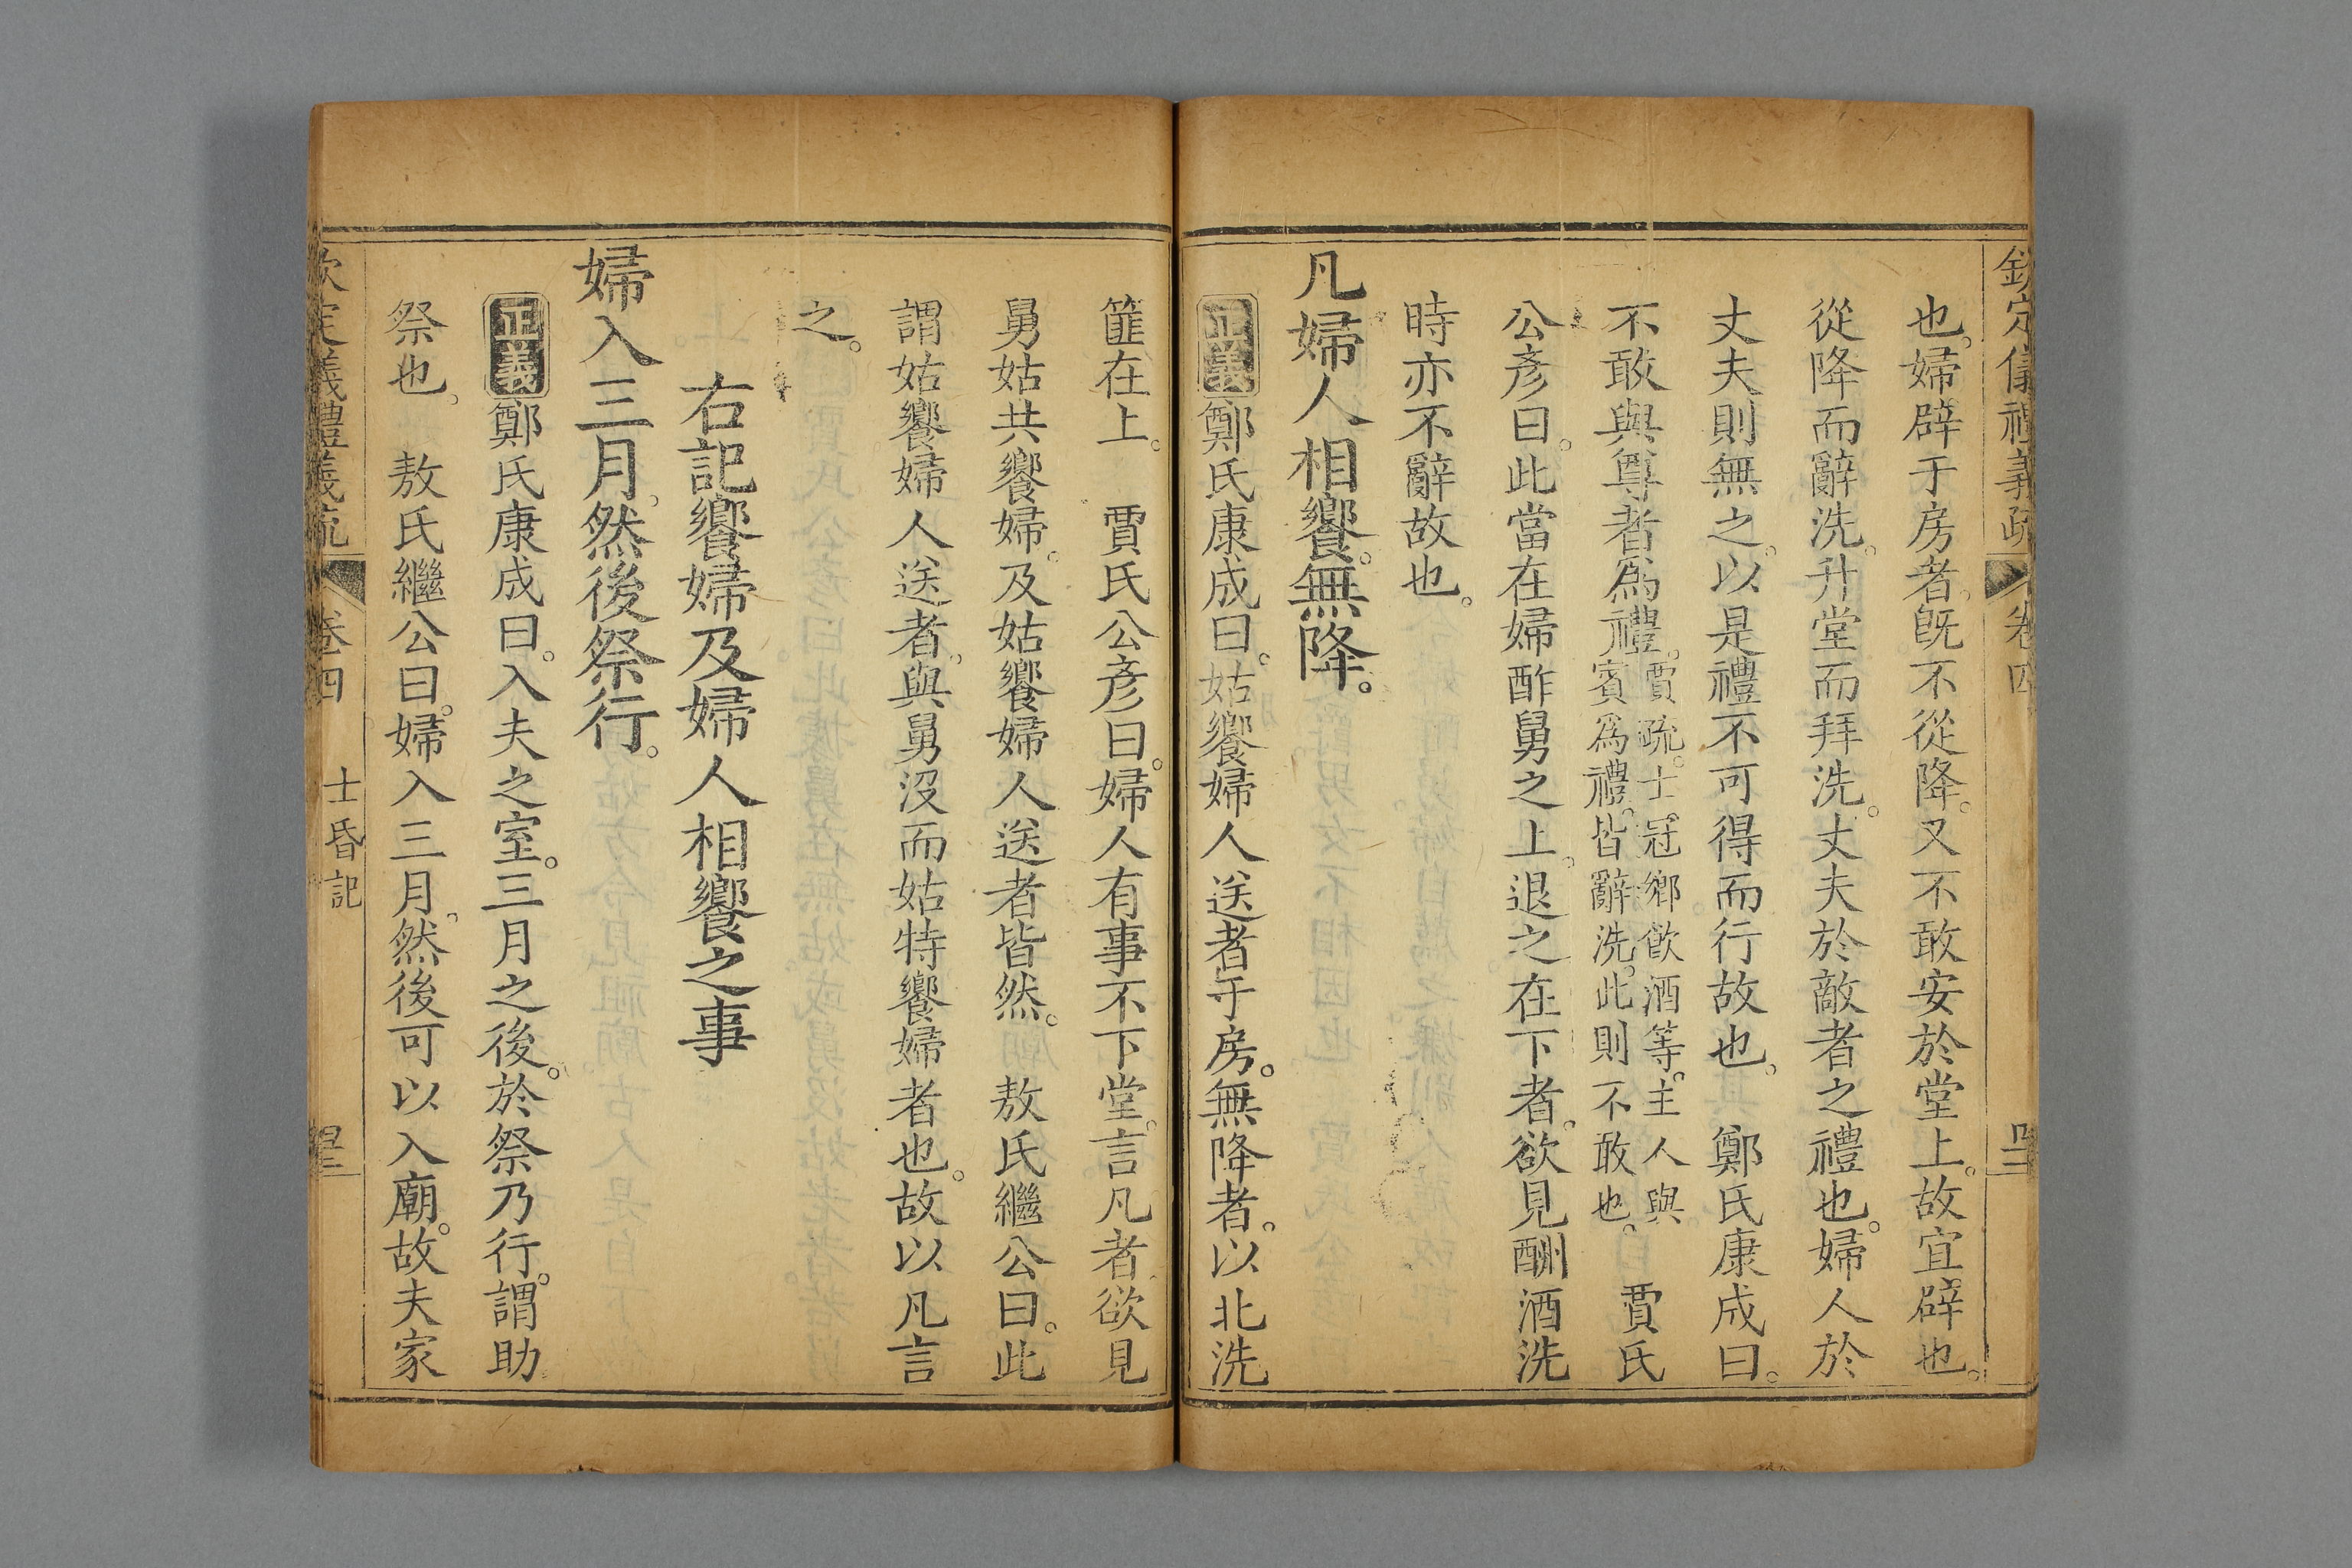 欽定儀禮義疏 卷四
也。婦辟于房者。旣不從降。又不敢安於堂上。故宜辟也。
從降而辭洗。升堂而拜洗。丈夫於敵者之禮也。婦人於
丈夫則無之。以是禮不可得而行故也。 鄭氏康成曰。
不敢與尊者爲禮。賈疏。士冠鄉飮酒等。主人與賓爲禮。皆辭洗。此則不敢也。 賈氏
公彥曰。此當在婦酢舅之上。退之在下者。欲見酬酒洗
時亦不辭故也。
凡婦人相饗。無降。
正義鄭氏康成曰。姑饗婦人送者于房。無降者。以北洗
篚在上。 賈氏公彥曰。婦人有事不下堂。言凡者。欲見
舅姑共饗婦。及姑饗婦人送者皆然。 敖氏繼公曰。此
謂姑饗婦人送者。與舅沒而姑特饗婦者也。故以凡言
之。
右記饗婦及婦人相饗之事
婦入三月。然後祭行。
正義鄭氏康成曰。入夫之室。三月之後。於祭乃行。謂助
祭也。 敖氏繼公曰。婦入三月。然後可以入廟。故夫家
欽定儀禮義疏 卷四 士昏記